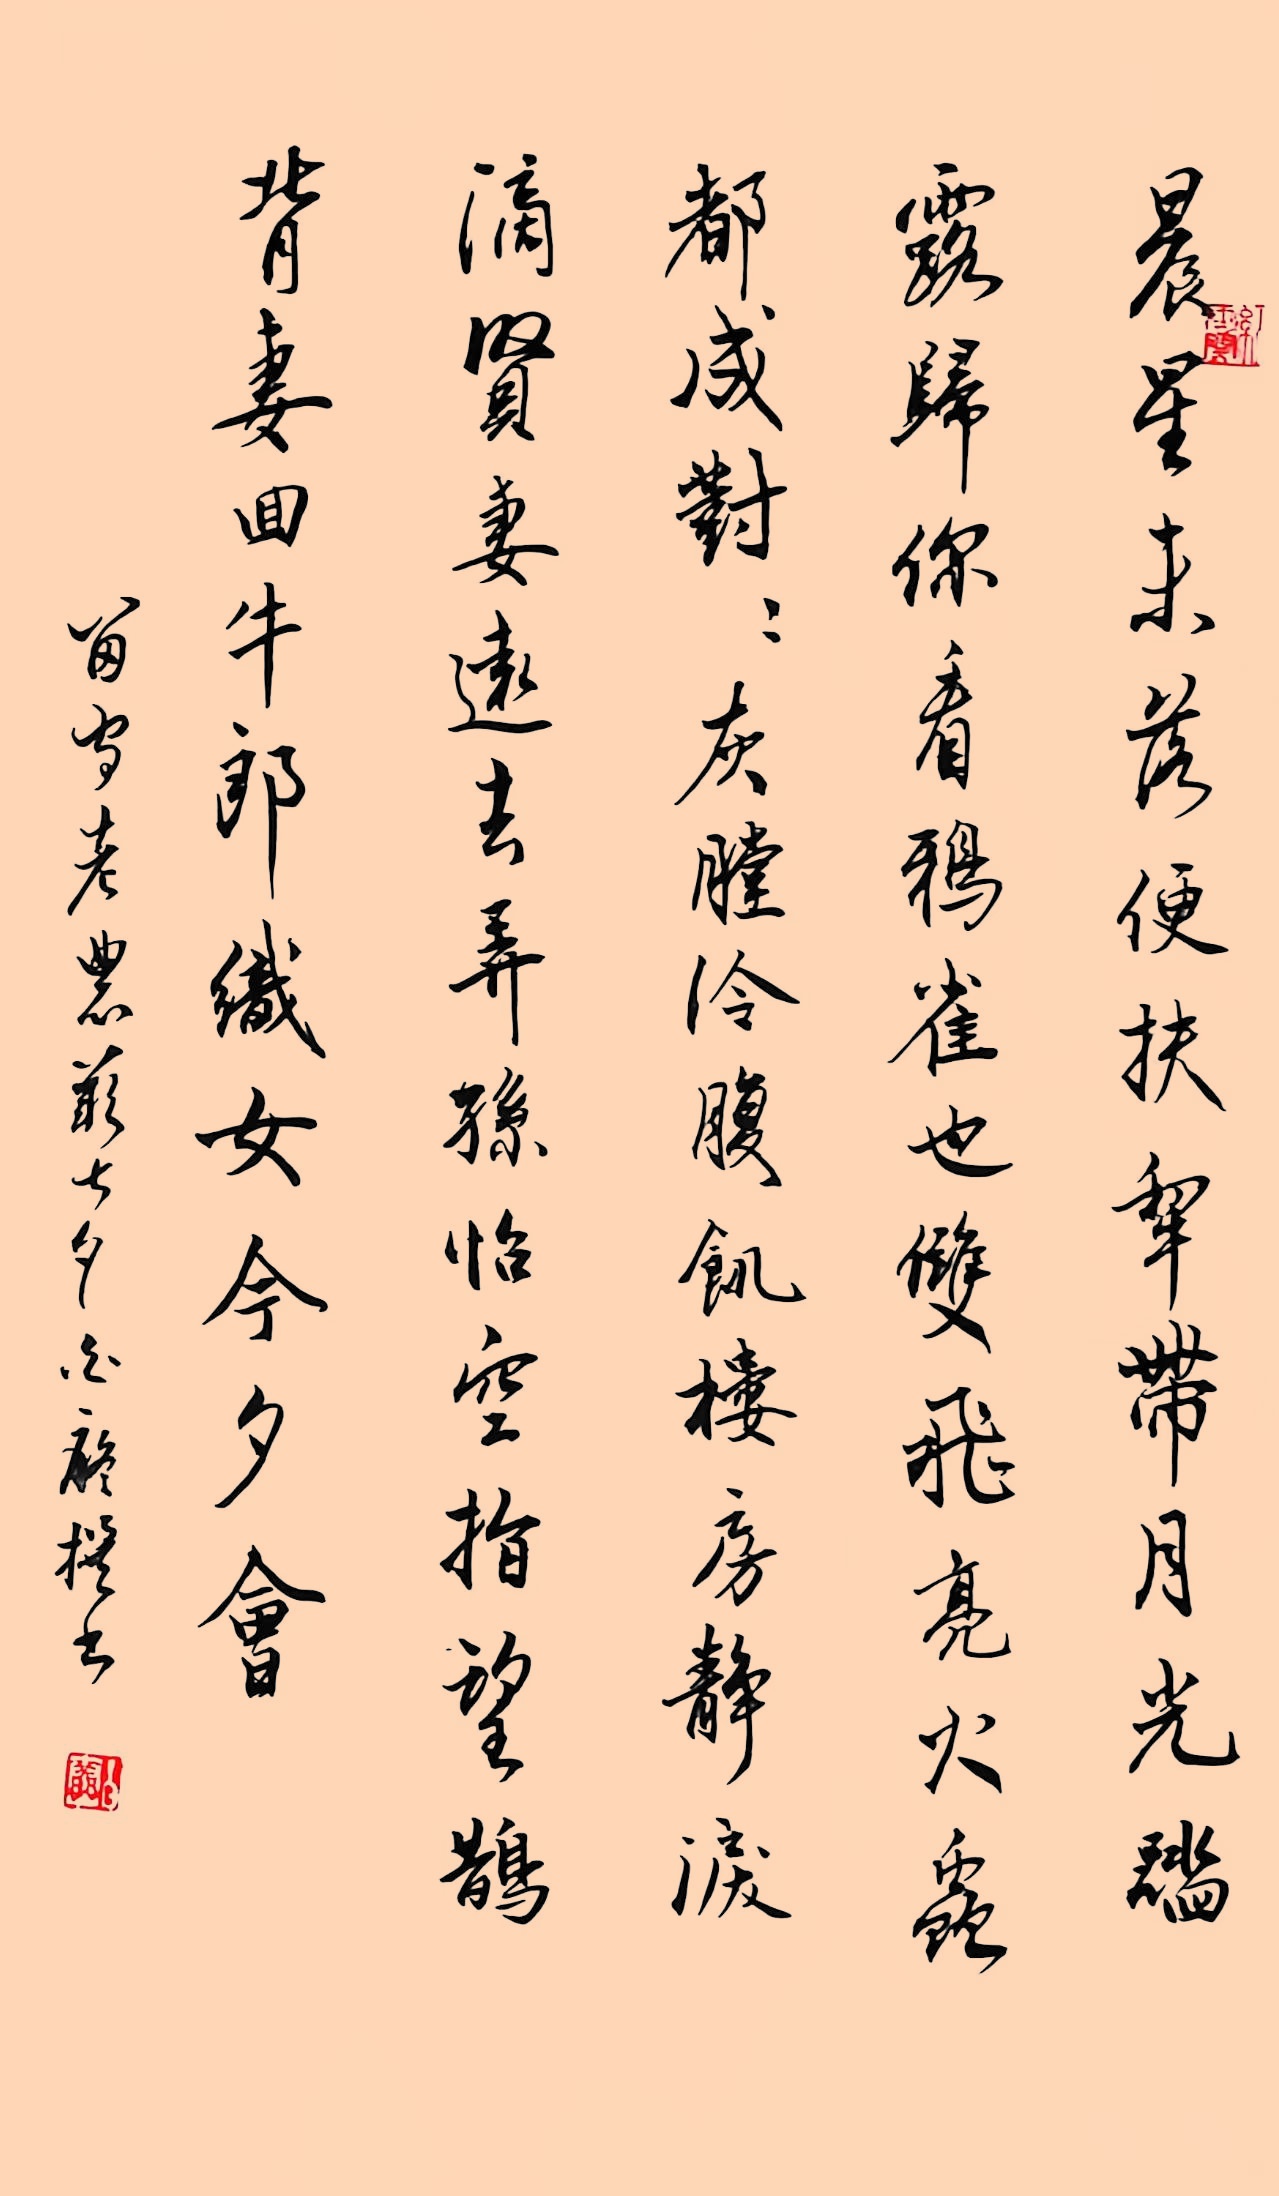 晨星未落便扶犂帶月光踏
露歸你看鴉雀也雙飛亮火螢
都成對〻灰膛冷腹飢樓房靜淚
滴賢妻遠去弄孫怡空指望鵲
背妻回牛郎織女今夕會
留守老農歎七夕 撰書